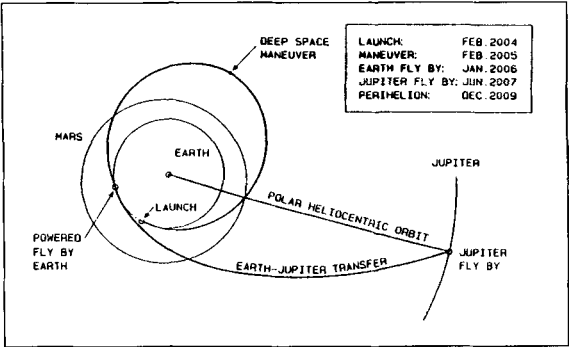 DEEP SPACE
MANEUVER
LAUNCH: FEB.2004
MANEUVER: FEB.2005
EARTH FLY BY: JAN.2006
JUPITER FLY BY: JUN.2007
PERIHELION: DEC.2009
MARS
EARTH
JUPITER
LAUNCH
POLAR HELIOCENTRIC ORBIT
POWERED
FLY BY
EARTH
EARTH-JUPITER TRANSFER
JUPITER
FLY BY